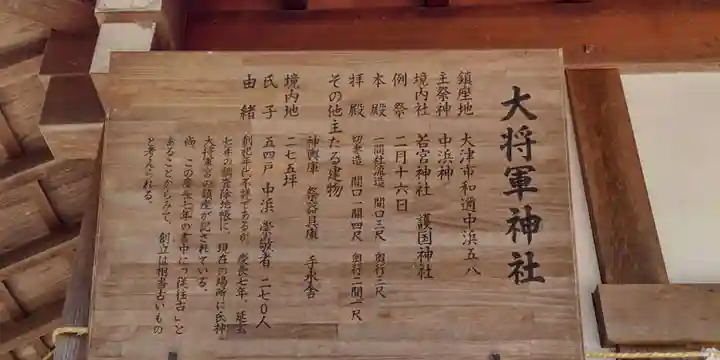 大将軍神社
鎮座地 大津市和邇中浜五八
主祭神 中浜神
境内社 若宮神社 護国神社
例祭 二月十六日
本殿 一間社流造 間口三尺 奥行三尺
拝殿 切妻造 間口一間四尺 奥行二間一尺
その他主たる建物
神輿庫 祭器具庫 手水舎
境内地 二七五坪
氏子 五四戸 中浜 崇敬者 二七〇人
由緒 創祀年代不詳であるが、慶長七年、延宝
七年の調査除地帳に、現在の場所に氏神
大将軍宮の鎮座が記されている。
尚、この慶長七年の書中に「従往古」と
あることからみて、創立は相当古いもの
と考えられる。